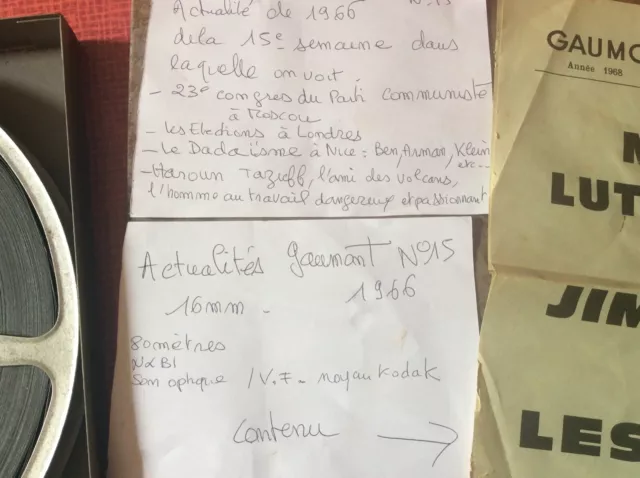 Actualité de 1966 N°15
de la 15e semaine dans
laquelle on voit.
- 23e congres du Parti communiste
à Moscou
- les Elections à Londres
- Le Dadaïsme à Nice : Ben, Arman, Klein
etc...
- Haroun Tazieff, l'ami des volcans,
l'homme au travail dangereux et passionnant
Actualités gaumont N°15
16mm - 1966
80 mètres
N & Bl
Son optique / V.F. - noyau Kodak
Contenu →
GAUMO
Année 1968
LUT
JIM
LES